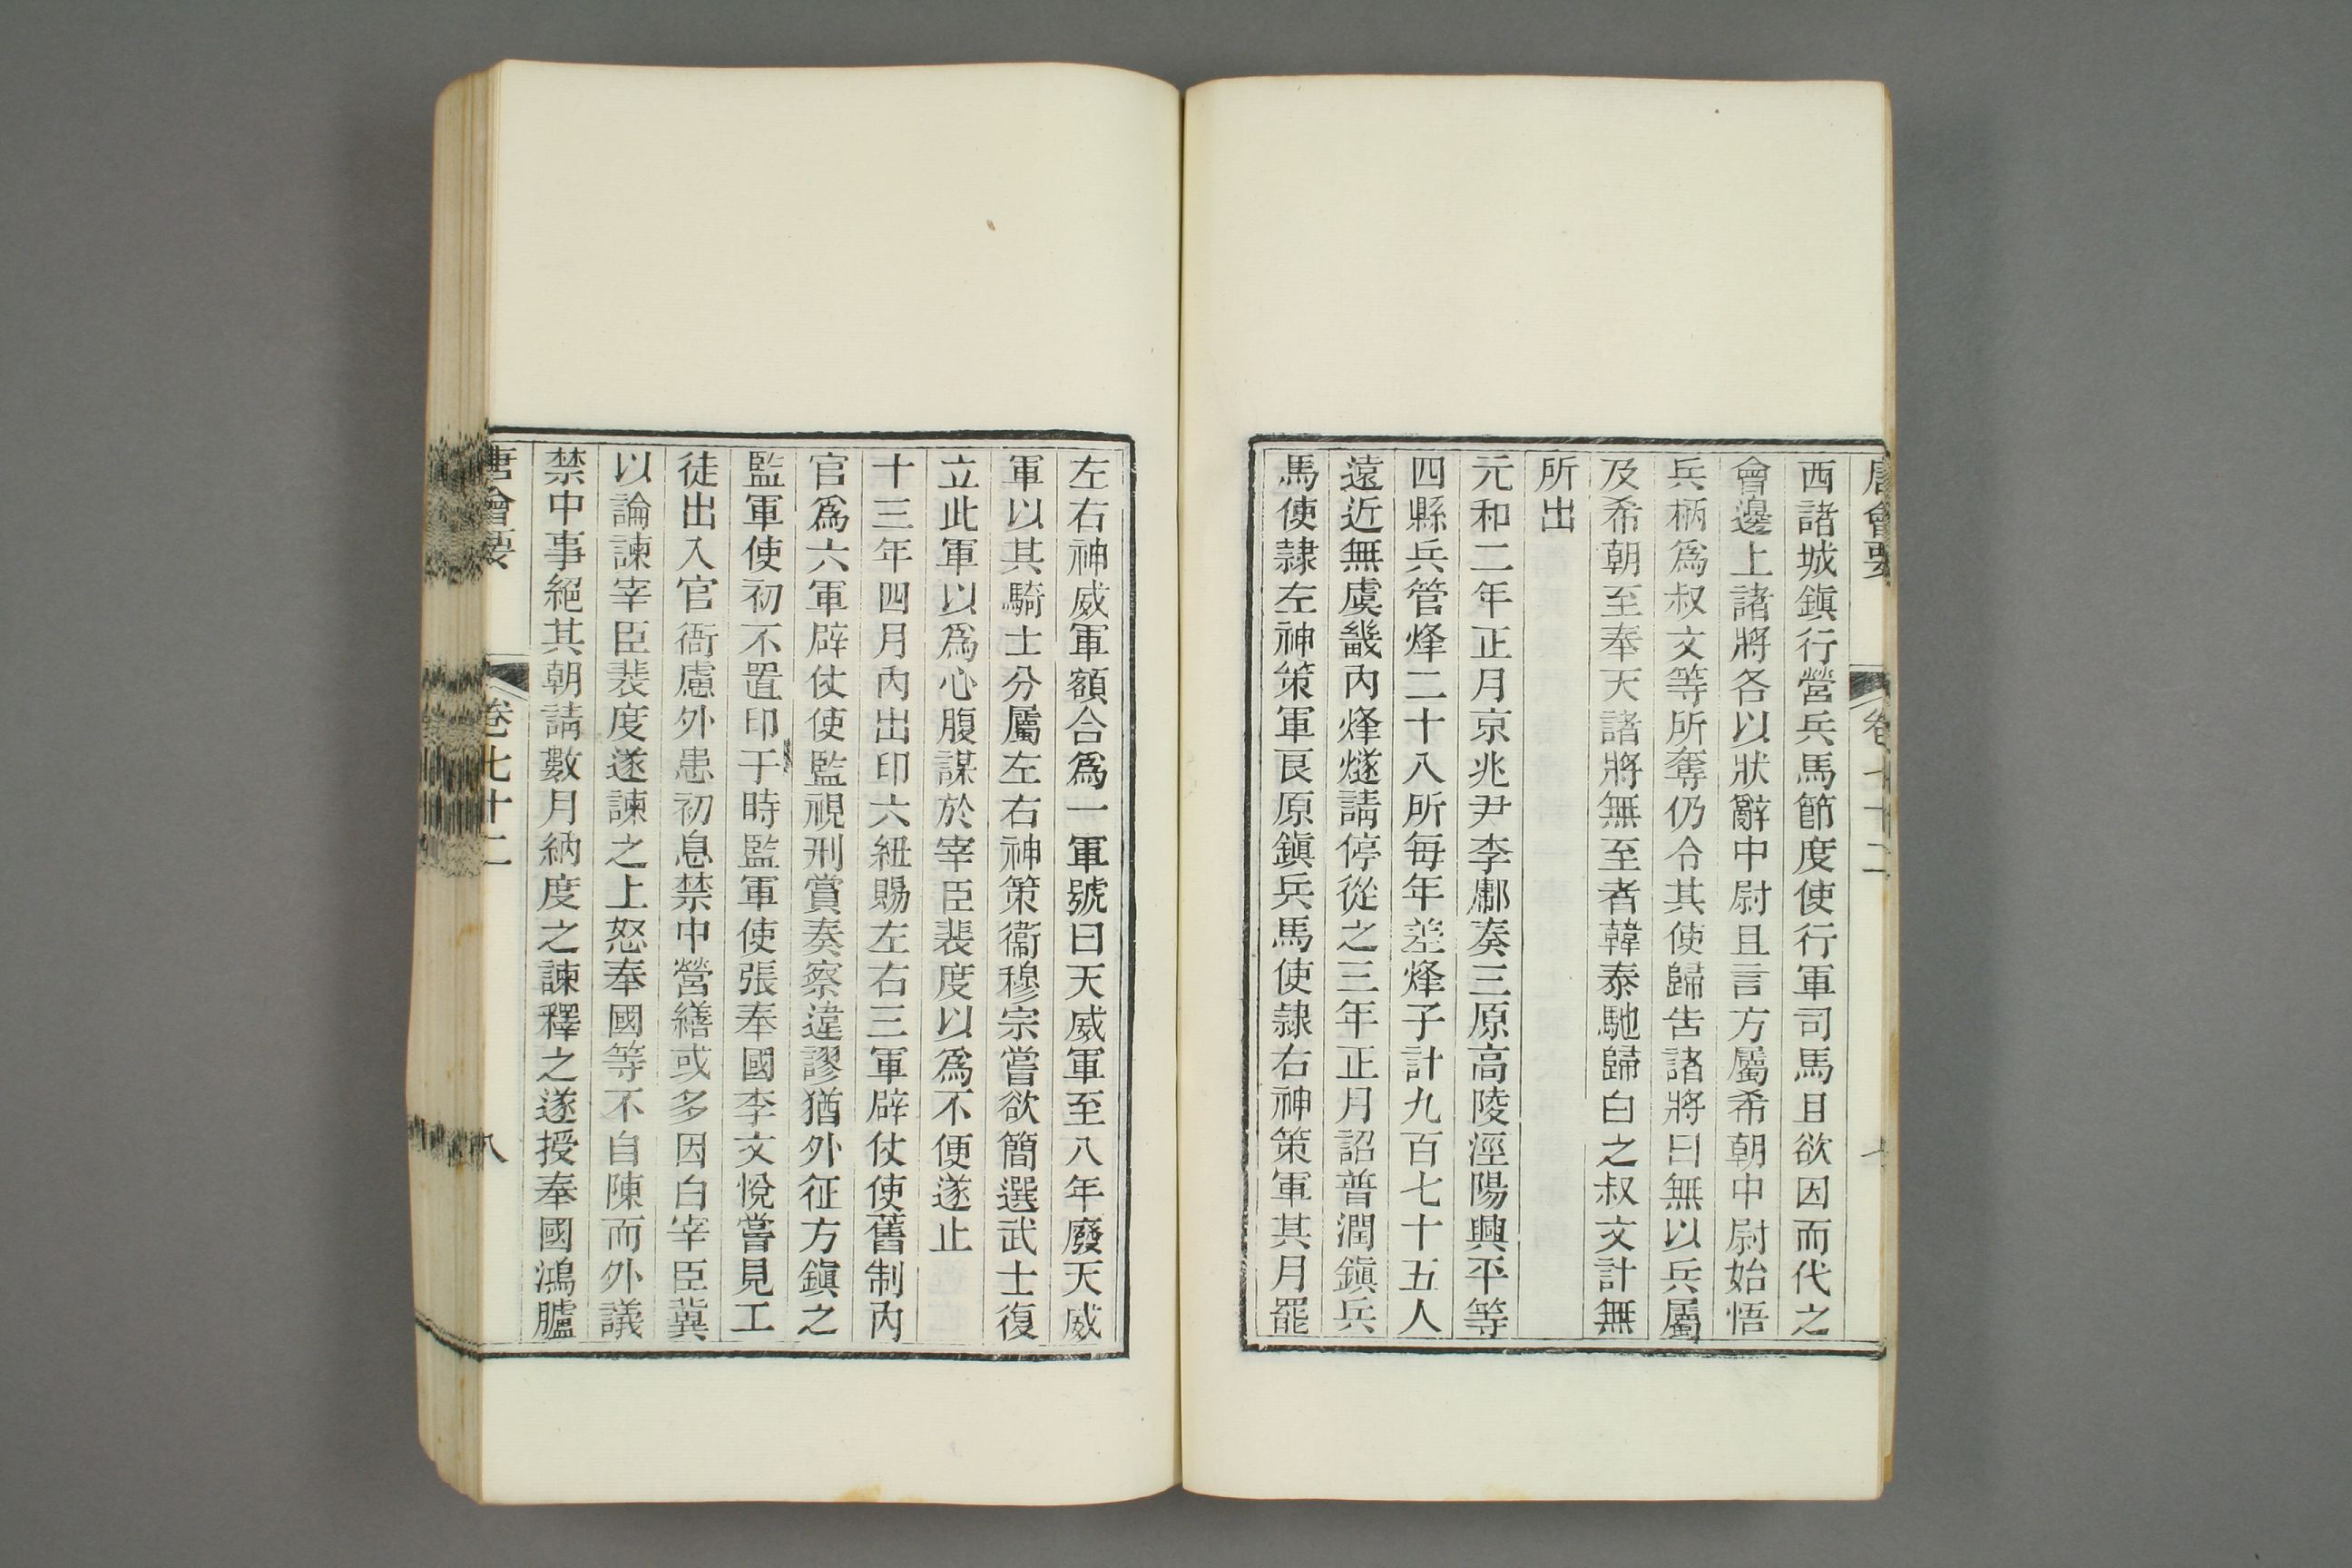 唐會要 卷七十二 七
西諸城鎭行營兵馬節度使行軍司馬且欲因而代之
會邊上諸將各以狀辭中尉且言方屬希朝中尉始悟
兵柄爲叔文等所奪仍令其使歸告諸將曰無以兵屬
及希朝至奉天諸將無至者韓泰馳歸白之叔文計無
所出
元和二年正月京兆尹李鄘奏三原高陵涇陽興平等
四縣兵管烽二十八所每年差烽子計九百七十五人
遠近無虞畿內烽燧請停從之三年正月詔普潤鎭兵
馬使隷左神策軍良原鎭兵馬使隷右神策軍其月罷
左右神威軍額合爲一軍號曰天威軍至八年廢天威
軍以其騎士分屬左右神策衞穆宗嘗欲簡選武士復
立此軍以爲心腹謀於宰臣裴度以爲不便遂止
十三年四月內出印六紐賜左右三軍辟仗使舊制內
官爲六軍辟仗使監視刑賞奏察違謬猶外征方鎭之
監軍使初不置印于時監軍使張奉國李文悅嘗見工
徒出入官衙慮外患初息禁中營繕或多因白宰臣冀
以論諫宰臣裴度遂諫之上怒奉國等不自陳而外議
禁中事絕其朝請數月納度之諫釋之遂授奉國鴻臚
唐會要 卷七十二 八